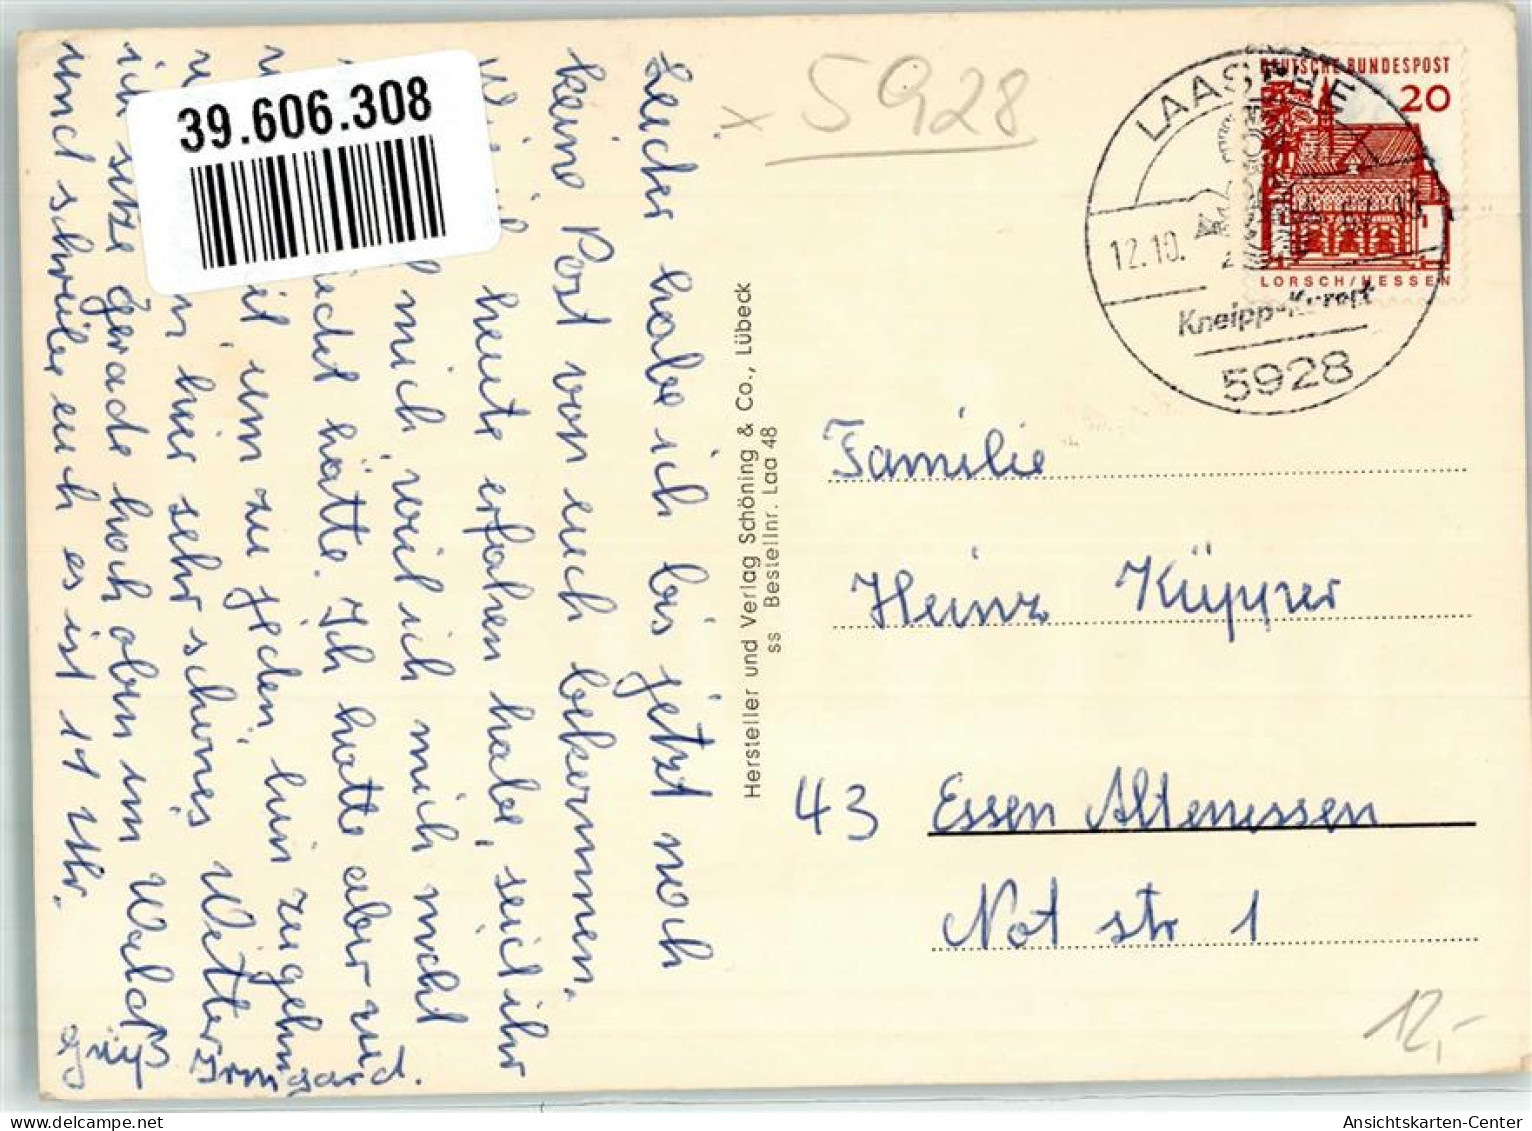 39.606.308
Leider habe ich bis jetzt noch
keine Post von euch bekommen.
heute erfahren habe, seid ihr
mich, weil ich mich nicht
hätte. Ich hatte aber
um zu jeden hin zugehn
hier sehr schönes Wetter
ich sitze gerade hoch oben im Wald
und schreibe euch es ist 11 Uhr.
Gruß Irmgard.
Hersteller und Verlag Schöning & Co., Lübeck
ss Bestellnr. Laa 48
x 5928
LAASPHE
12.10.
Kneipp-Kurort
5928
DEUTSCHE BUNDESPOST
20
LORSCH/HESSEN
Familie
Heinz Küpper
43 Essen Altenessen
Not str 1
12,-
Ansichtskarten-Center